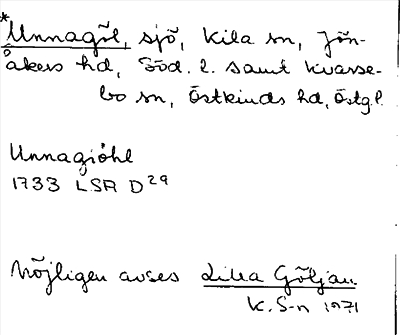 *Unnagöl, sjö, Kila sn, Jön-
åkers hd, Söd. l. samt Kvarse-
bo sn, Östkinds hd, Östgl.
Unnagiöhl
1733 LSA D29
Möjligen avses Lilla Göljan.
K. S-n 1971